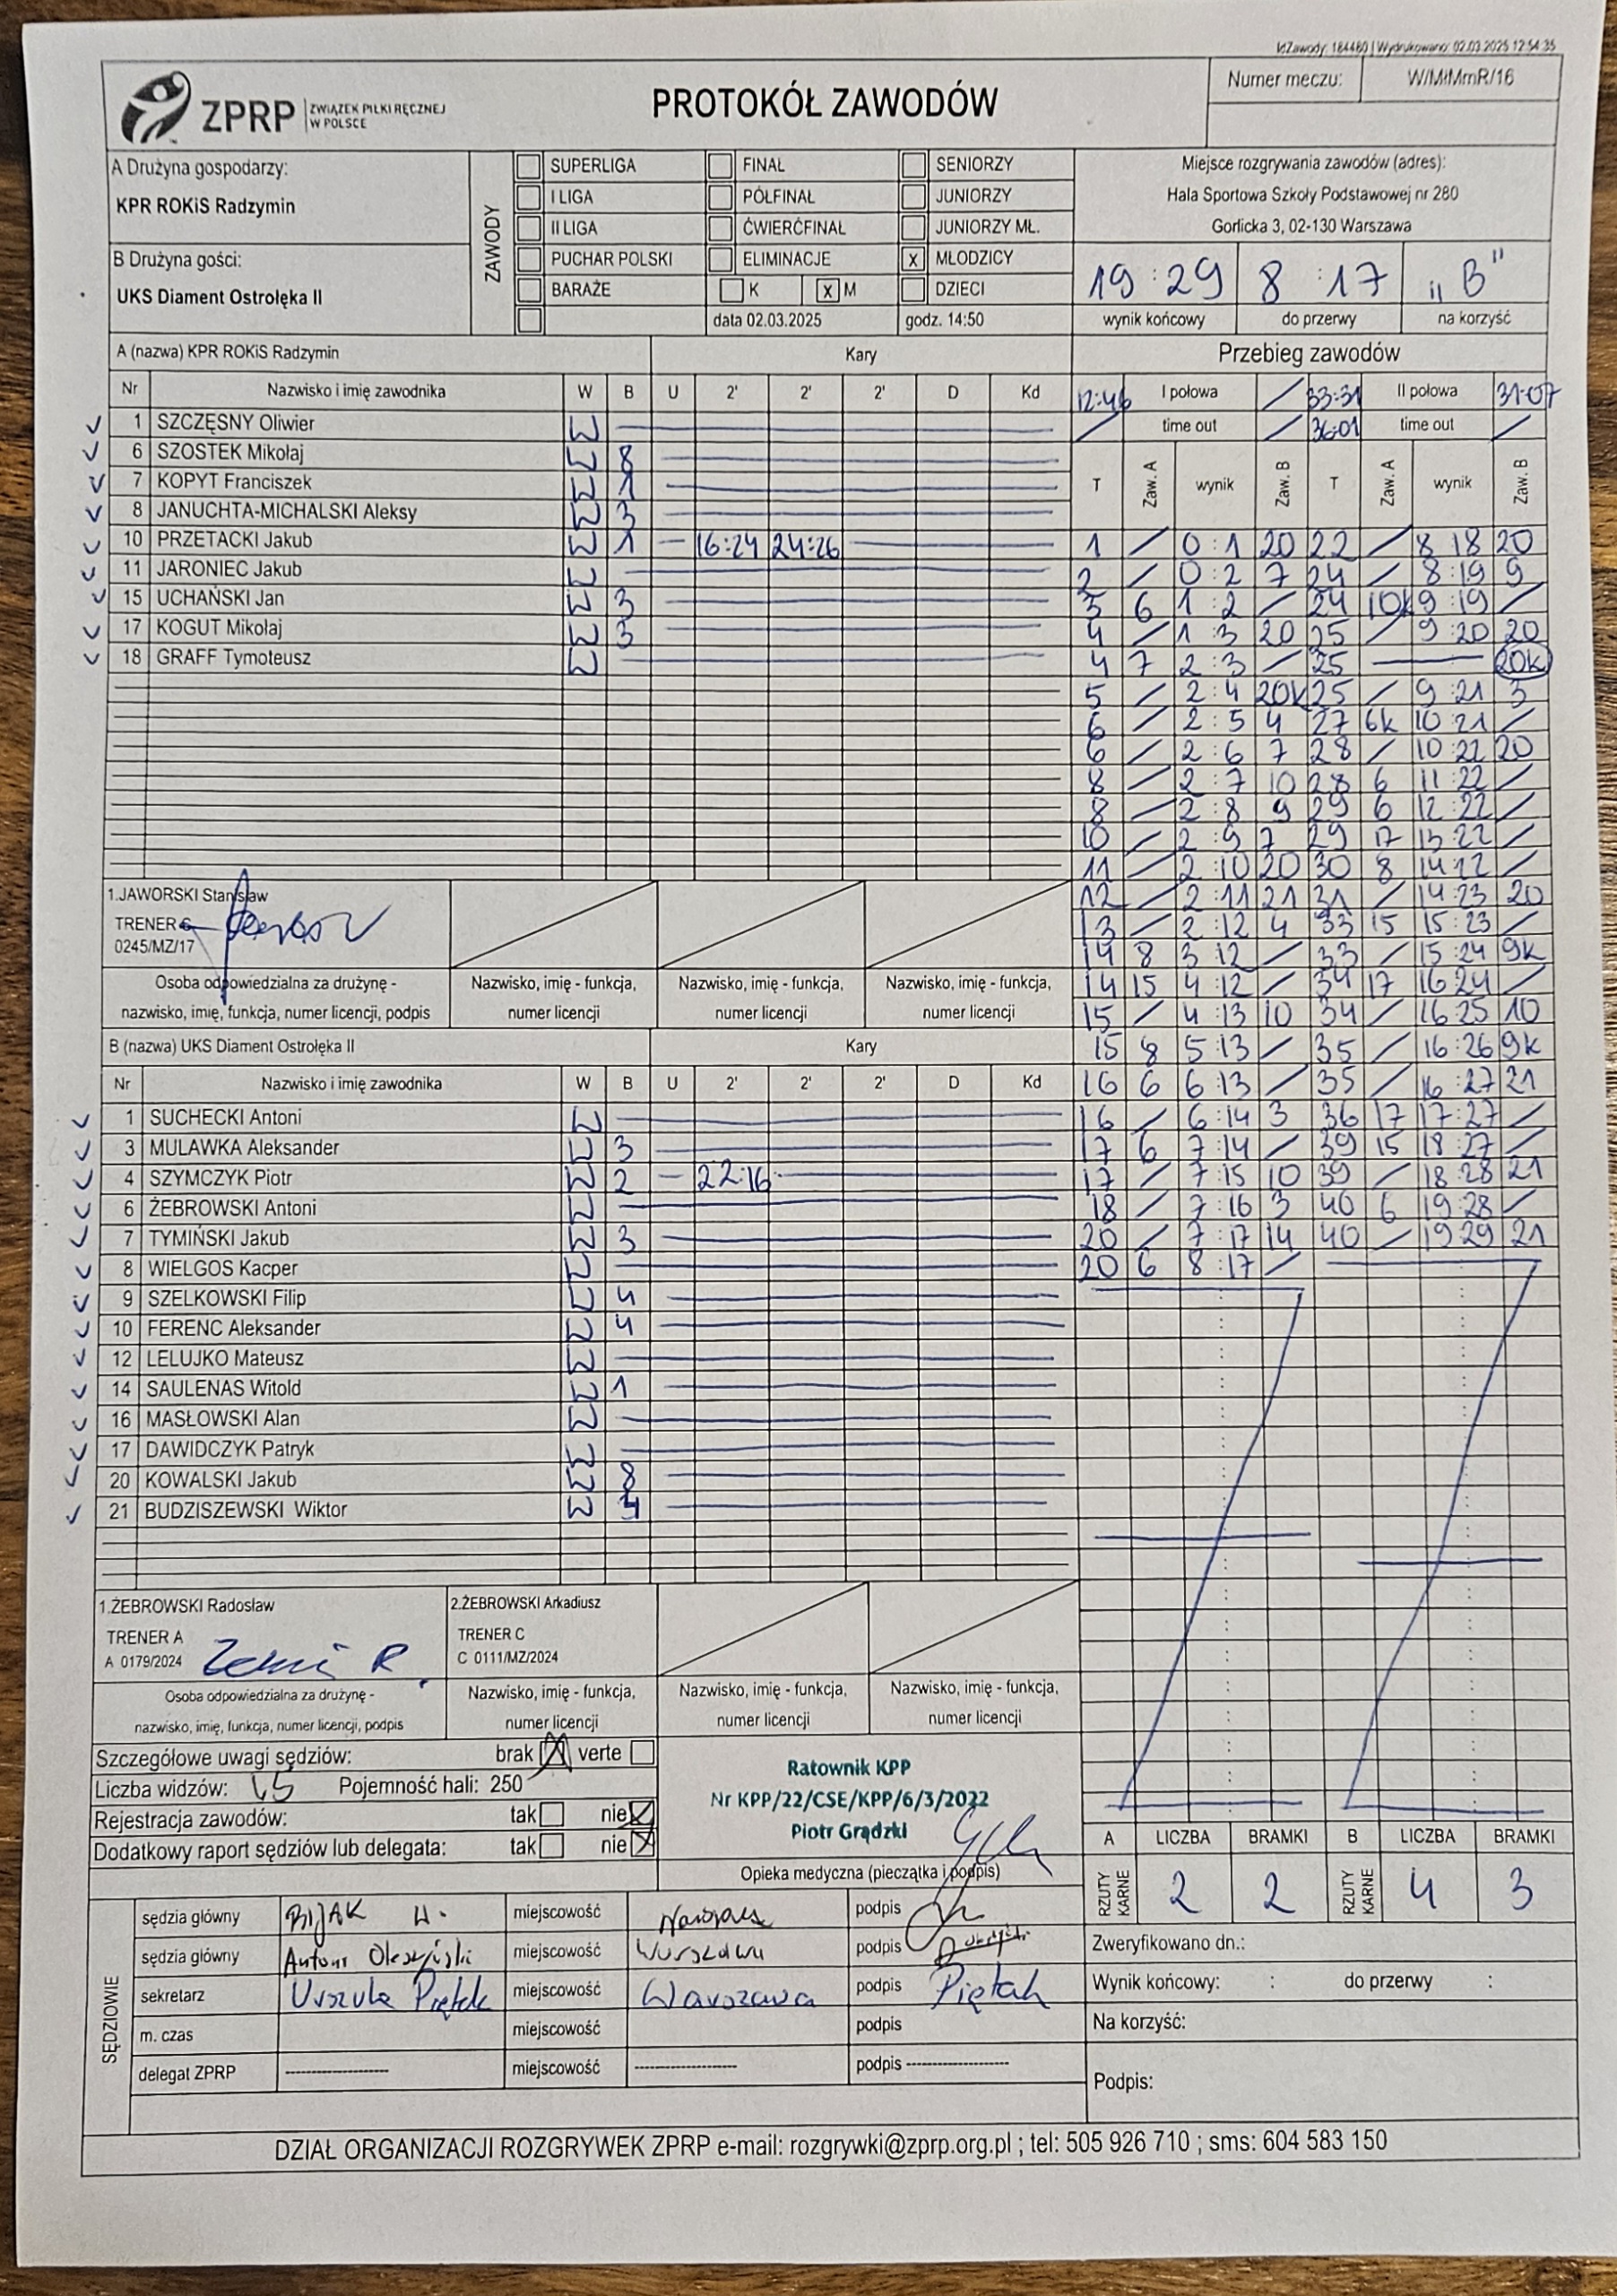 IdZawody: 184460 | Wydrukowano: 02.03.2025 12:54:35
ZPRP ZWIĄZEK PIŁKI RĘCZNEJ W POLSCE
PROTOKÓŁ ZAWODÓW
Numer meczu: W/MłMmR/16
A Drużyna gospodarzy:
KPR ROKiS Radzymin
B Drużyna gości:
UKS Diament Ostrołęka II
ZAWODY
SUPERLIGA FINAŁ SENIORZY
I LIGA PÓŁFINAŁ JUNIORZY
II LIGA ĆWIERĆFINAŁ JUNIORZY MŁ.
PUCHAR POLSKI ELIMINACJE x MŁODZICY
BARAŻE K x M DZIECI
data 02.03.2025 godz. 14:50
Miejsce rozgrywania zawodów (adres):
Hala Sportowa Szkoły Podstawowej nr 280
Gorlicka 3, 02-130 Warszawa
19 : 29 8 : 17 „B"
wynik końcowy do przerwy na korzyść
A (nazwa) KPR ROKiS Radzymin Kary
Nr Nazwisko i imię zawodnika W B U 2' 2' 2' D Kd
1 SZCZĘSNY Oliwier W
6 SZOSTEK Mikołaj W 8
7 KOPYT Franciszek W 1
8 JANUCHTA-MICHALSKI Aleksy W 3
10 PRZETACKI Jakub W 1 - 16:24 24:26
11 JARONIEC Jakub W
15 UCHAŃSKI Jan W 3
17 KOGUT Mikołaj W 3
18 GRAFF Tymoteusz W
1.JAWORSKI Stanisław
TRENER C
0245/MZ/17
Osoba odpowiedzialna za drużynę - Nazwisko, imię - funkcja, Nazwisko, imię - funkcja, Nazwisko, imię - funkcja,
nazwisko, imię, funkcja, numer licencji, podpis numer licencji numer licencji numer licencji
B (nazwa) UKS Diament Ostrołęka II Kary
Nr Nazwisko i imię zawodnika W B U 2' 2' 2' D Kd
1 SUCHECKI Antoni W
3 MULAWKA Aleksander W 3
4 SZYMCZYK Piotr W 2 - 22:16
6 ŻEBROWSKI Antoni W
7 TYMIŃSKI Jakub W 3
8 WIELGOS Kacper W
9 SZELKOWSKI Filip W 4
10 FERENC Aleksander W 4
12 LELUJKO Mateusz W
14 SAULENAS Witold W 1
16 MASŁOWSKI Alan W
17 DAWIDCZYK Patryk W
20 KOWALSKI Jakub W 8
21 BUDZISZEWSKI Wiktor W 4
1.ŻEBROWSKI Radosław 2.ŻEBROWSKI Arkadiusz
TRENER A TRENER C
A 0179/2024 C 0111/MZ/2024
Osoba odpowiedzialna za drużynę - Nazwisko, imię - funkcja, Nazwisko, imię - funkcja, Nazwisko, imię - funkcja,
nazwisko, imię, funkcja, numer licencji, podpis numer licencji numer licencji numer licencji
Przebieg zawodów
12:46 I połowa / 33:31 II połowa 31:07
/ time out / 36:01 time out /
T Zaw. A wynik Zaw. B T Zaw. A wynik Zaw. B
1 / 0 : 1 20 22 / 8 18 20
2 / 0 : 2 7 24 / 8 : 19 9
3 6 1 : 2 / 24 10k 9 : 19 /
4 / 1 : 3 20 25 / 9 : 20 20
4 7 2 : 3 / 25 — 20k
5 / 2 : 4 20k 25 / 9 : 21 3
6 / 2 : 5 4 27 6k 10 : 21 /
6 / 2 : 6 7 28 / 10 : 22 20
8 / 2 : 7 10 28 6 11 : 22 /
8 / 2 : 8 9 29 6 12 : 22 /
10 / 2 : 9 7 29 17 13 : 22 /
11 / 2 : 10 20 30 8 14 : 22 /
12 / 2 : 11 21 31 / 14 : 23 20
13 / 2 : 12 4 33 15 15 : 23 /
14 8 3 : 12 / 33 / 15 : 24 9k
14 15 4 : 12 / 34 17 16 : 24 /
15 / 4 : 13 10 34 / 16 : 25 10
15 8 5 : 13 / 35 / 16 : 26 9k
16 6 6 : 13 / 35 / 16 : 27 21
16 / 6 : 14 3 36 17 17 : 27 /
17 6 7 : 14 / 39 15 18 : 27 /
17 / 7 : 15 10 39 / 18 : 28 21
18 / 7 : 16 3 40 6 19 : 28 /
20 / 7 : 17 14 40 / 19 : 29 21
20 6 8 : 17 /
Szczegółowe uwagi sędziów: brak X verte
Liczba widzów: 45 Pojemność hali: 250
Rejestracja zawodów: tak nie X
Dodatkowy raport sędziów lub delegata: tak nie X
Ratownik KPP
Nr KPP/22/CSE/KPP/6/3/2022
Piotr Grądzki
Opieka medyczna (pieczątka i podpis)
A LICZBA BRAMKI B LICZBA BRAMKI
RZUTY KARNE 2 2 RZUTY KARNE 4 3
SĘDZIOWIE
sędzia główny BIJAK H. miejscowość podpis
sędzia główny Antoni miejscowość Warszawa podpis
sekretarz Urszula Piętak miejscowość Warszawa podpis Piętak
m. czas miejscowość podpis
delegat ZPRP ---------- miejscowość ---------- podpis ----------
Zweryfikowano dn.:
Wynik końcowy: : do przerwy :
Na korzyść:
Podpis:
DZIAŁ ORGANIZACJI ROZGRYWEK ZPRP e-mail: rozgrywki@zprp.org.pl ; tel: 505 926 710 ; sms: 604 583 150